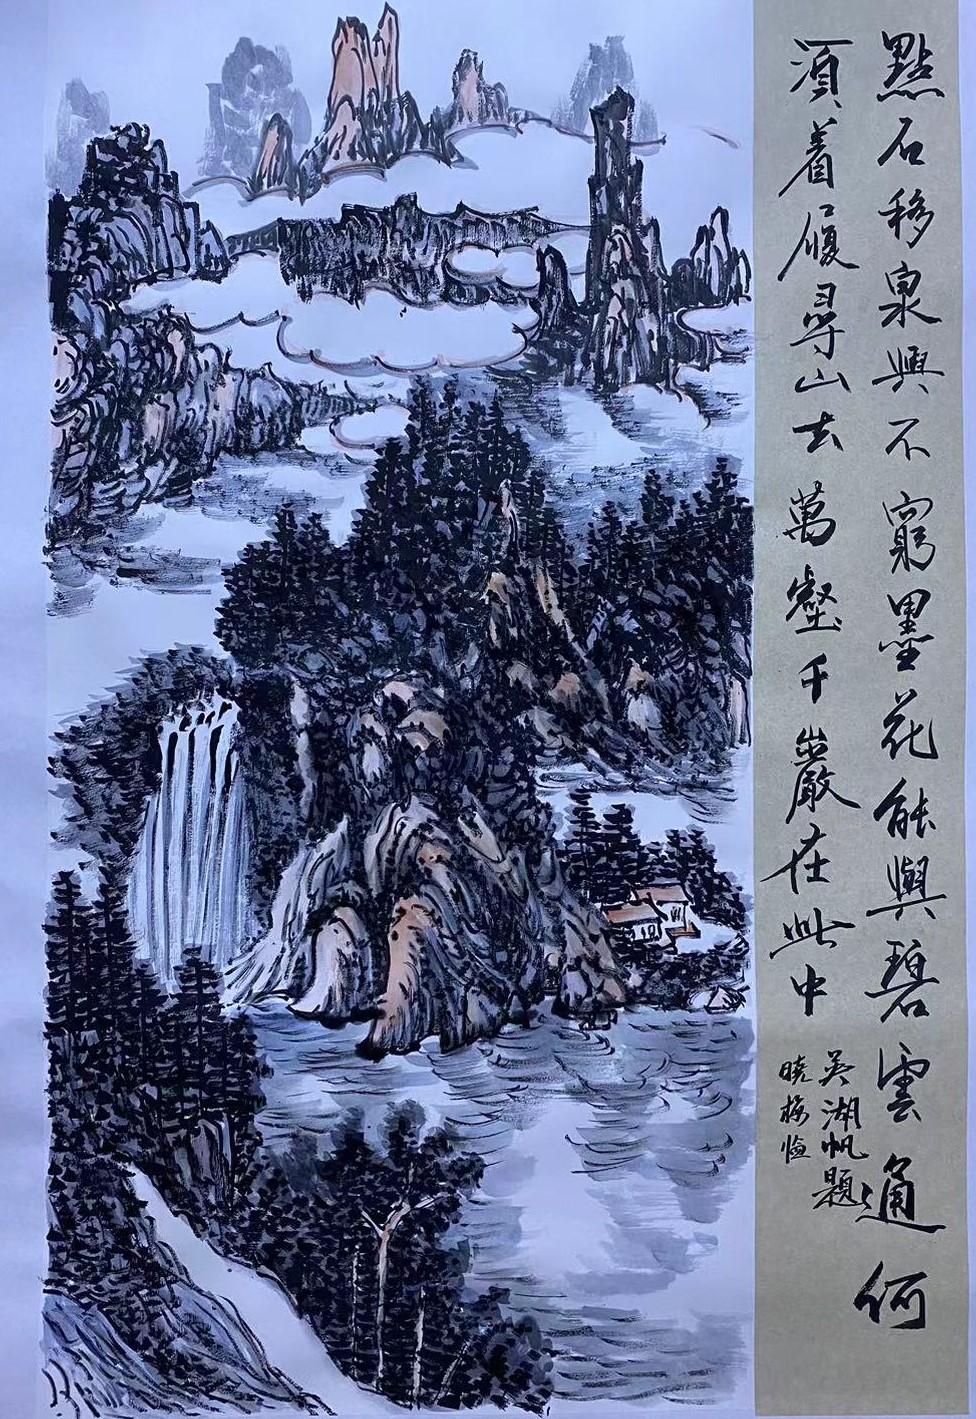 點石移泉興不窮墨花能與碧雲通何
須着履尋山去萬壑千巖在此中
吳湖帆題
曉梅